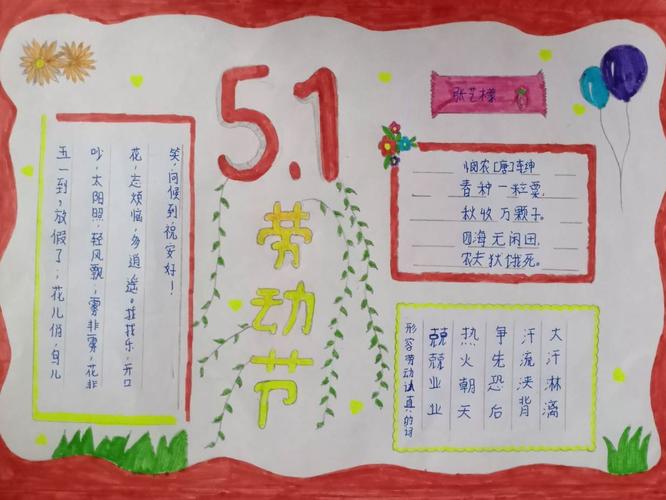 5.1
劳动节
五一到，放假了；花儿俏，鸟儿
吵，太阳照，轻风飘；雾非雾，花非
花，忘烦恼，勿逍遥。找找乐，开口
笑，问候到，祝安好！
张艺
悯农[唐]李绅
春种一粒粟，
秋收万颗子。
四海无闲田，
农夫犹饿死。
形容劳动认真的词
兢兢业业
热火朝天
争先恐后
汗流浃背
大汗淋漓